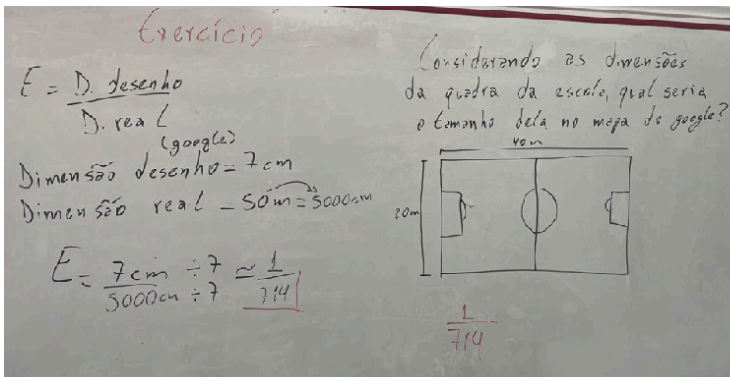 Exercício
E = D. desenho
D. real
(google)
Dimensão desenho = 7cm
Dimensão real = 50m = 5000cm
E = 7cm ÷ 7 ≃ 1
5000cm ÷ 7 714
Considerando as dimensões
da quadra da escola, qual seria
o tamanho dela no mapa do google?
40m
20m
1
714